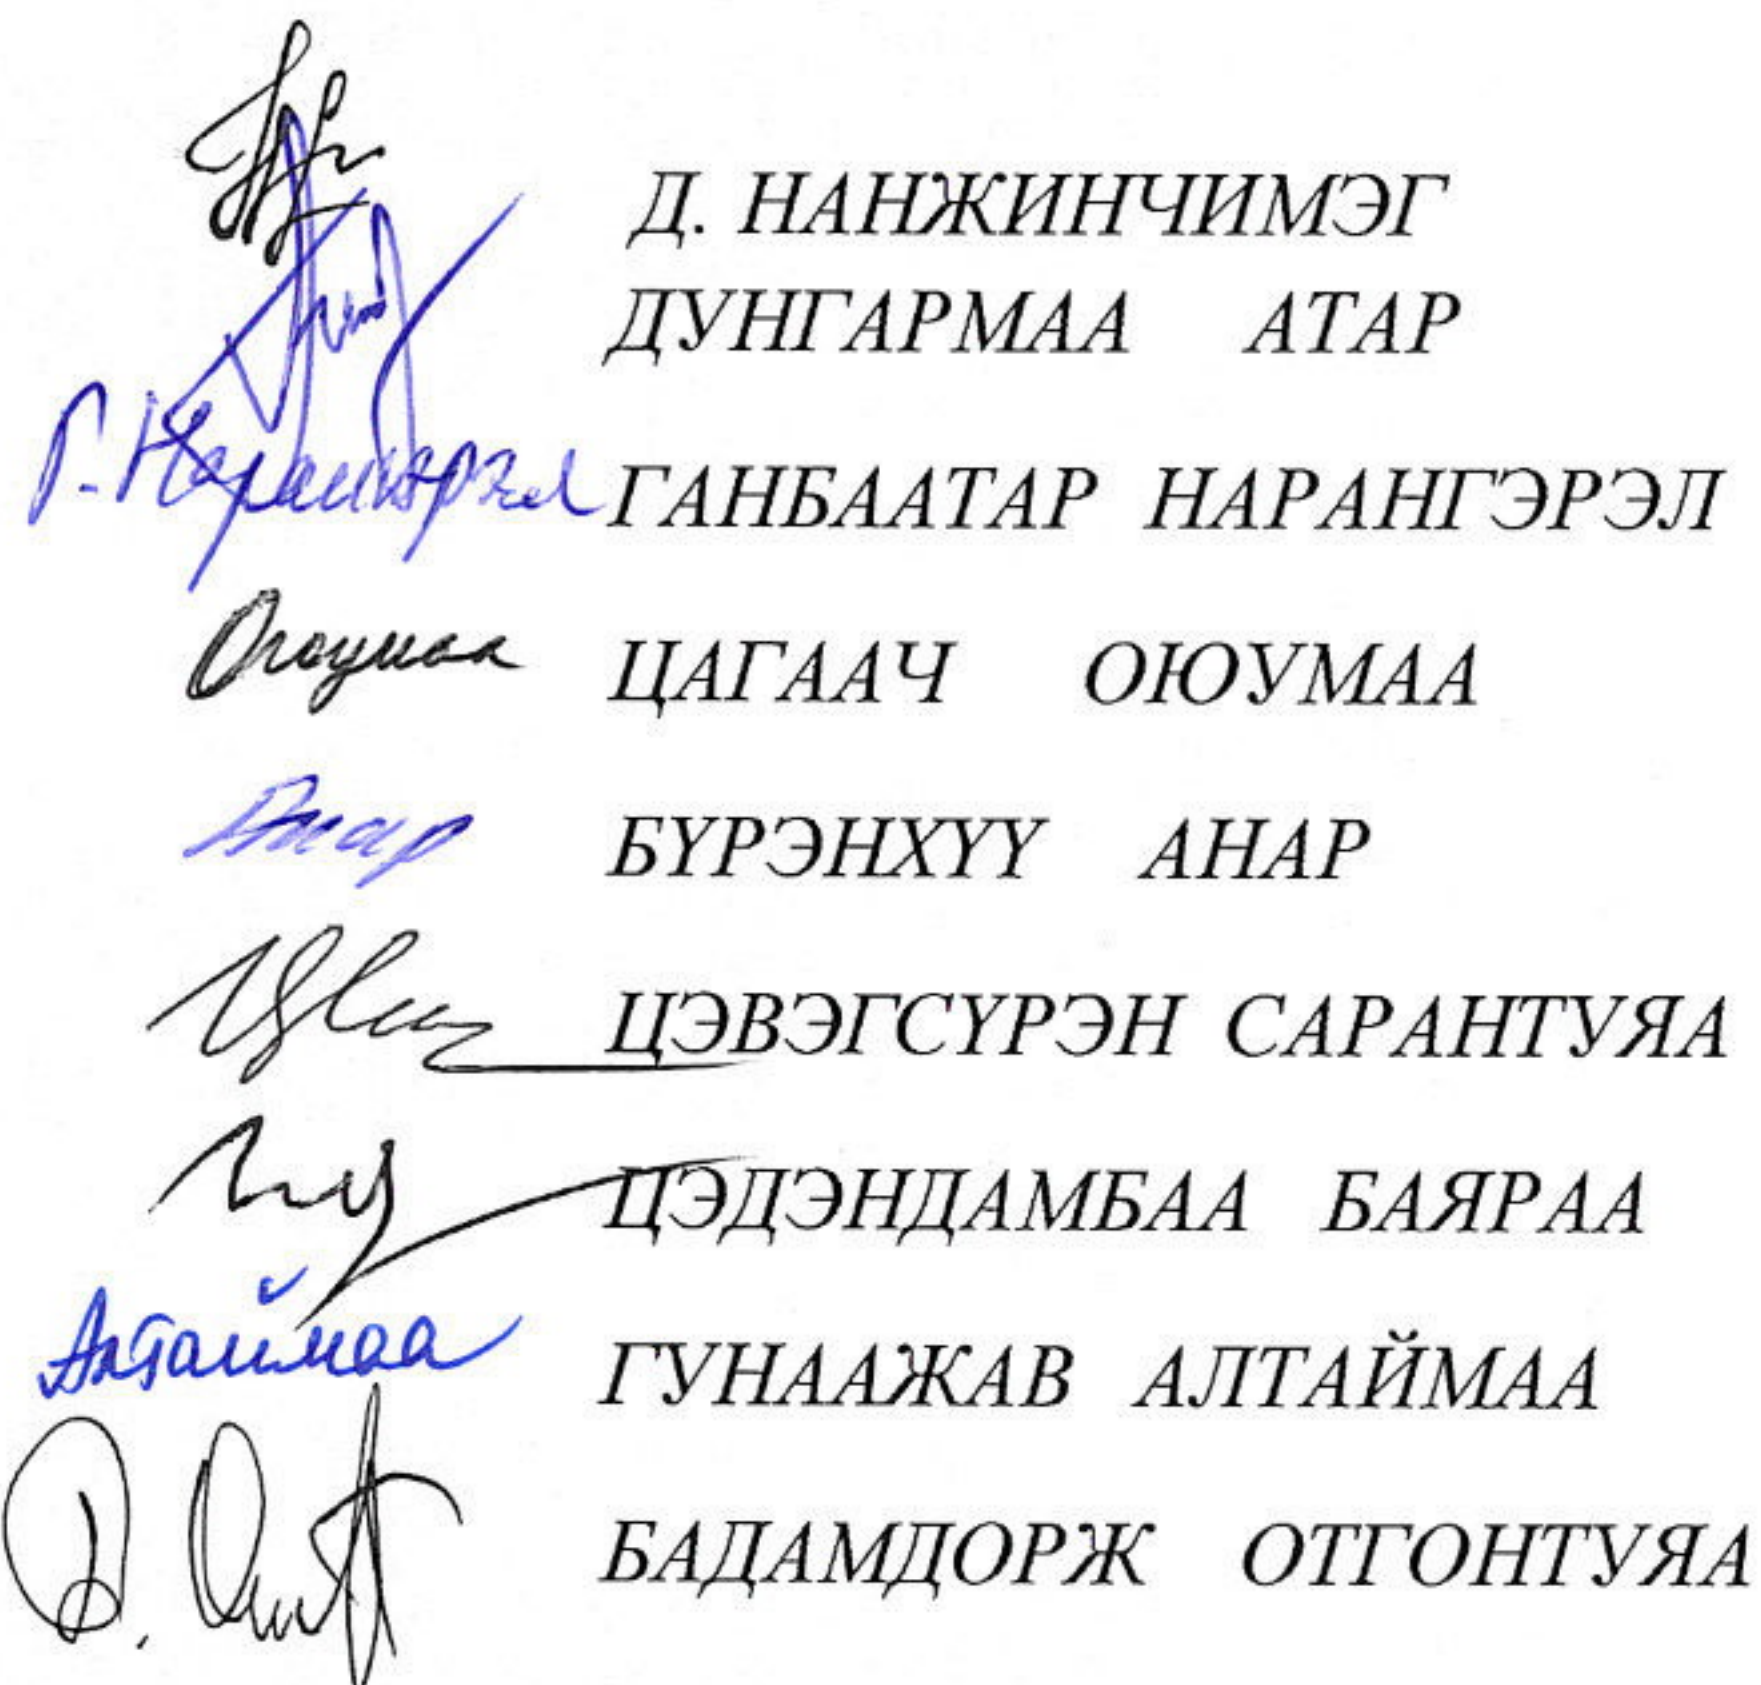 Д. НАНЖИНЧИМЭГ
ДУНГАРМАА АТАР
Г. Нарангэрэл ГАНБААТАР НАРАНГЭРЭЛ
Оюумаа ЦАГААЧ ОЮУМАА
Анар БҮРЭНХҮҮ АНАР
ЦЭВЭГСҮРЭН САРАНТУЯА
ЦЭДЭНДАМБАА БАЯРАА
Алтаймаа ГУНААЖАВ АЛТАЙМАА
БАДАМДОРЖ ОТГОНТУЯА